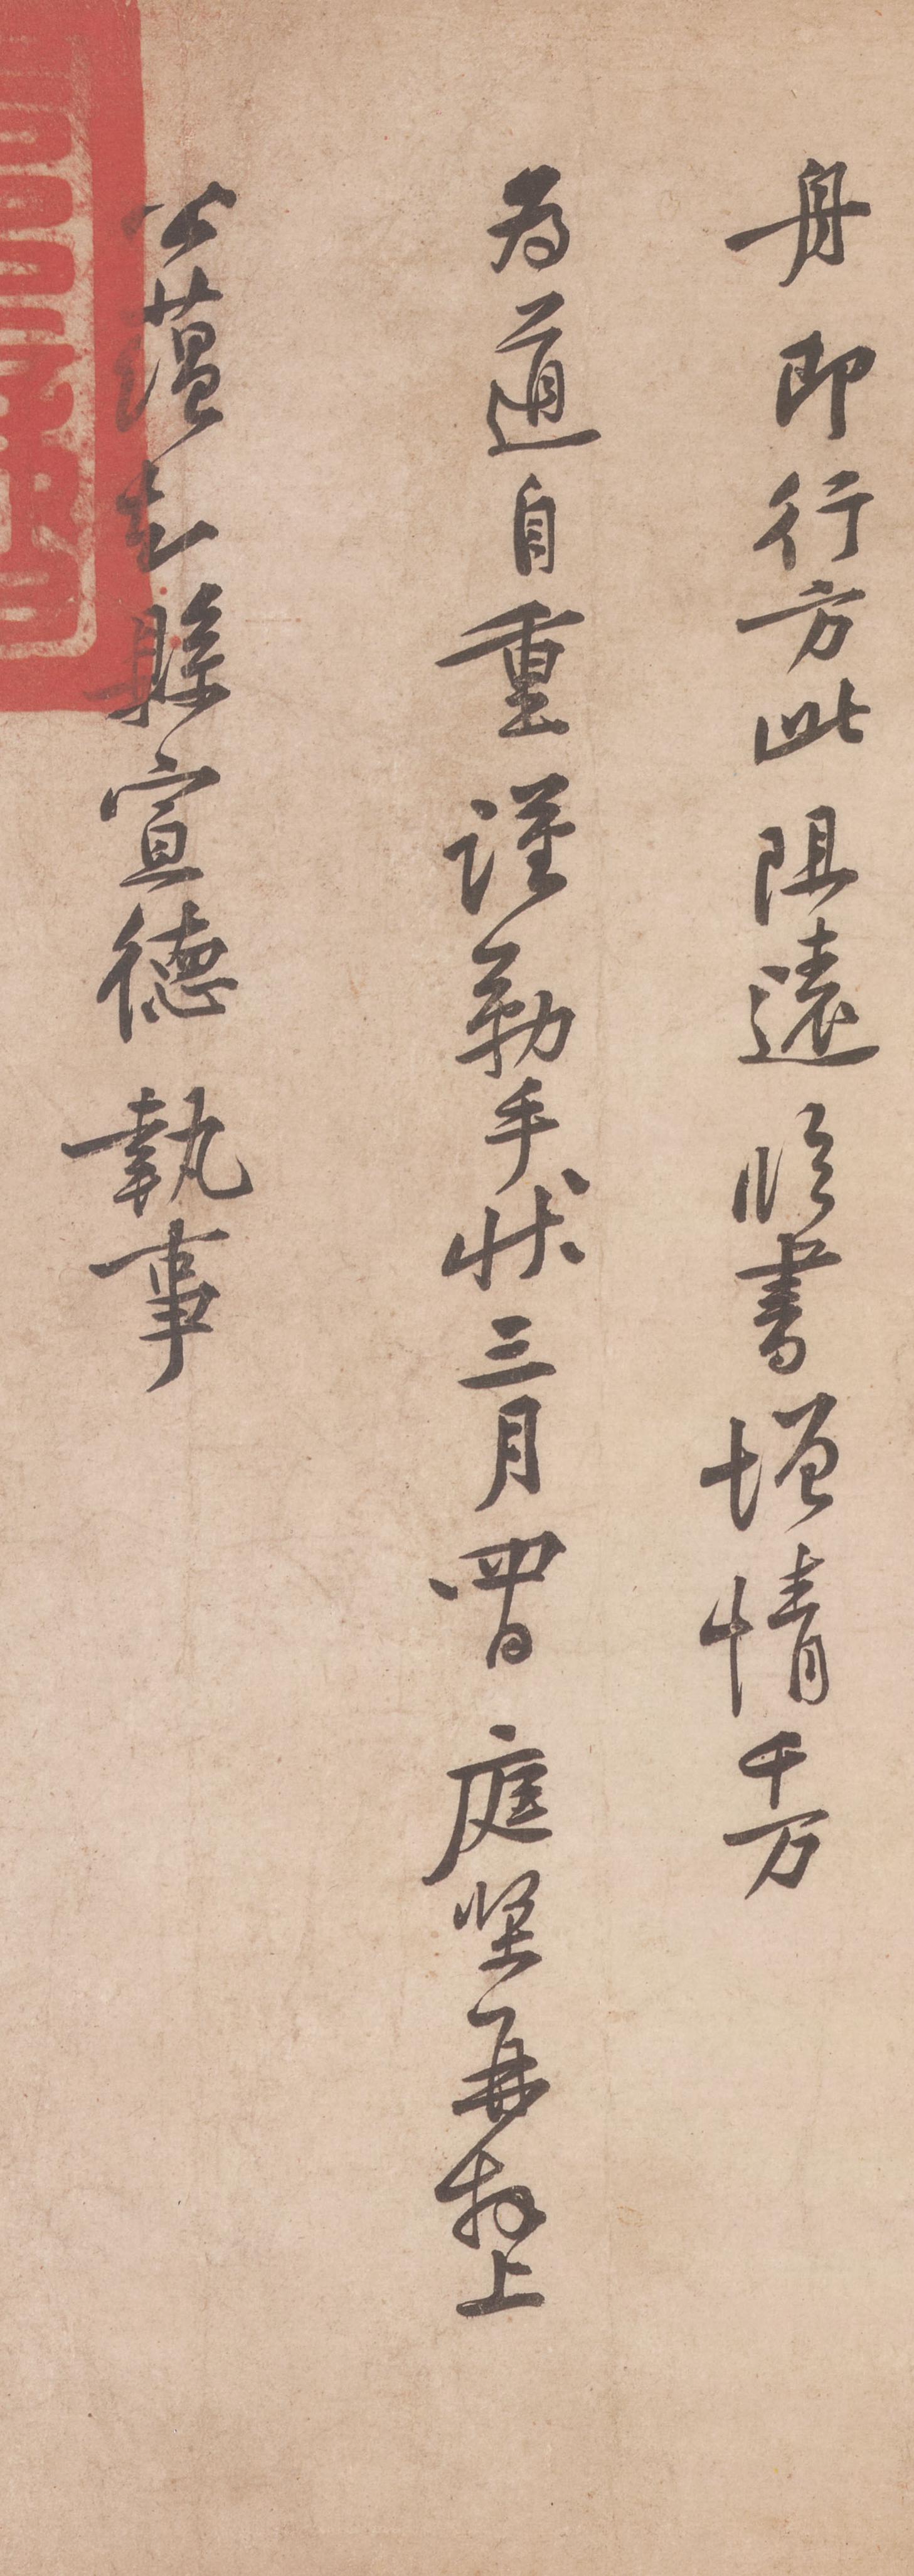 舟即行方此阻遠臨書增情千万
為道自重謹勒手狀三月四日庭堅再拜上
公薀知縣宣德執事